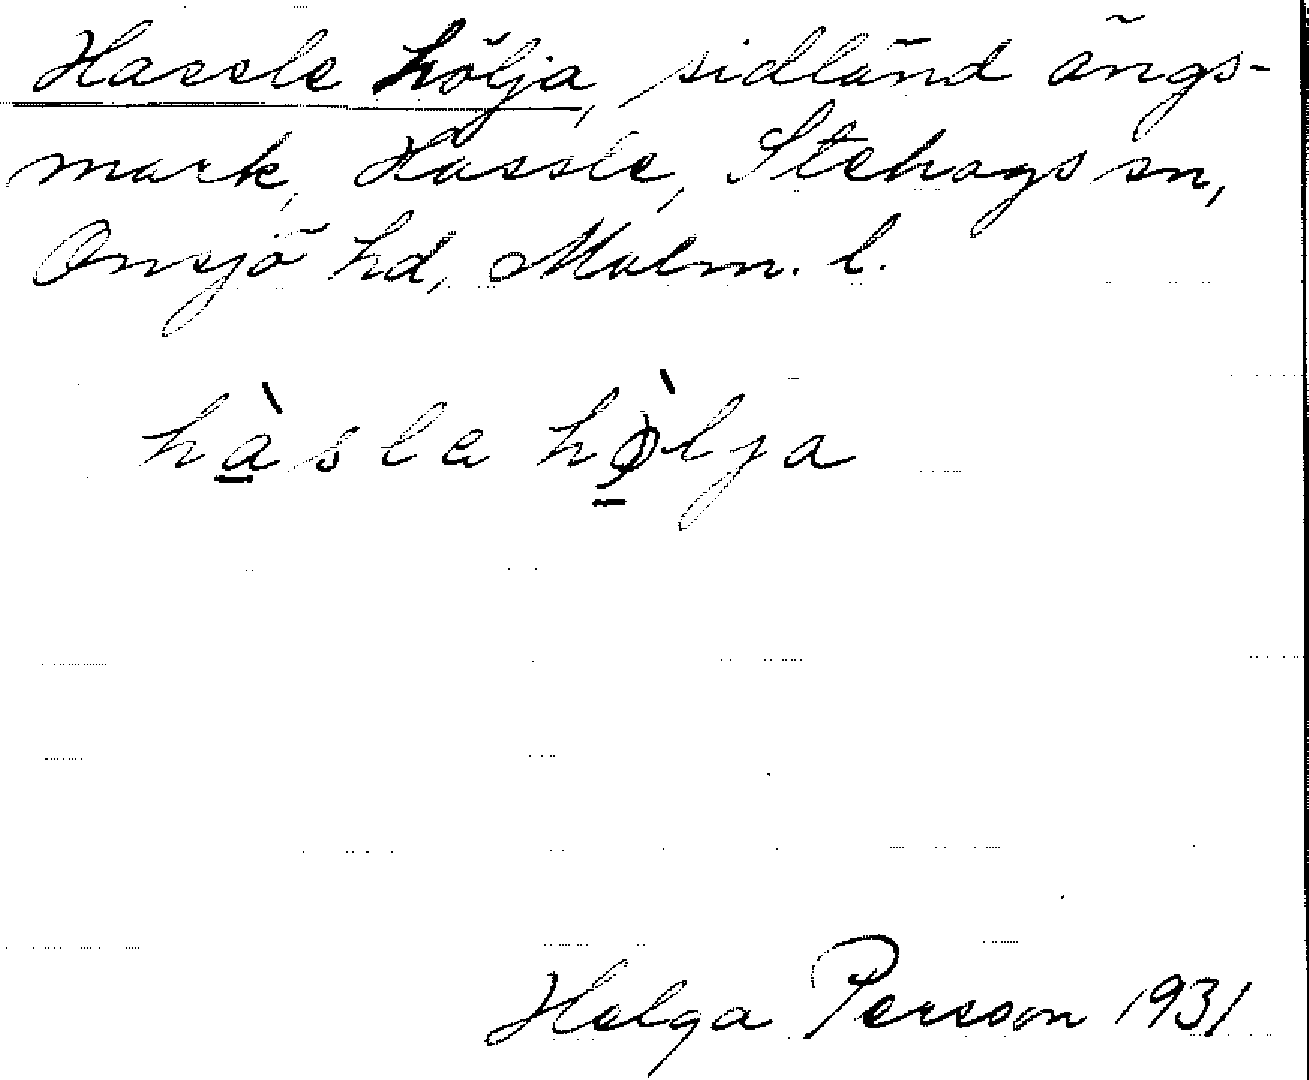 Hassle hölja, sidländ ängs-
mark, Hassle, Stehags sn,
Onsjö hd, Malm. l.
hàsla hø̀lja
Helga Person 1931